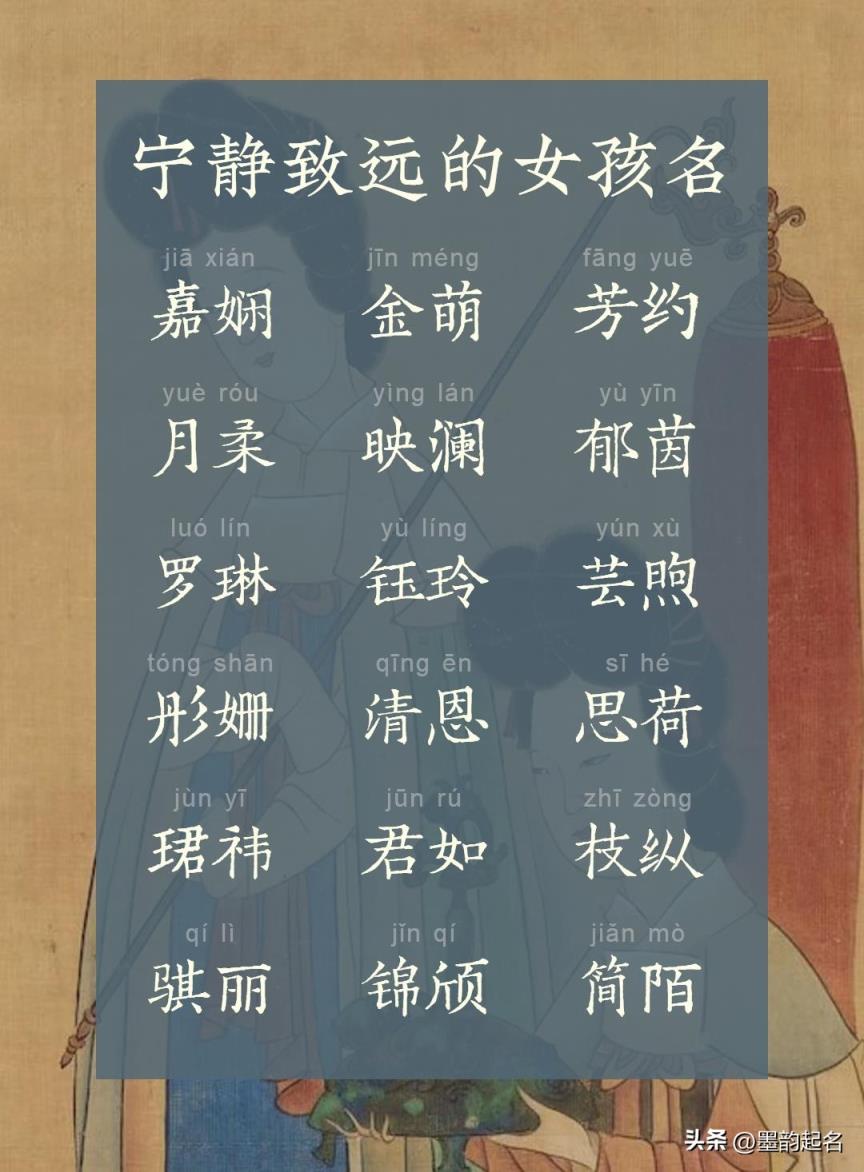 宁静致远的女孩名
jiā xián jīn méng fāng yuē
嘉娴 金萌 芳约
yuè róu yìng lán yù yīn
月柔 映澜 郁茵
luó lín yù líng yún xù
罗琳 钰玲 芸煦
tóng shān qīng ēn sī hé
彤姗 清恩 思荷
jùn yī jūn rú zhī zòng
珺祎 君如 枝纵
qí lì jǐn qí jiǎn mò
骐丽 锦颀 简陌
头条 @墨韵起名